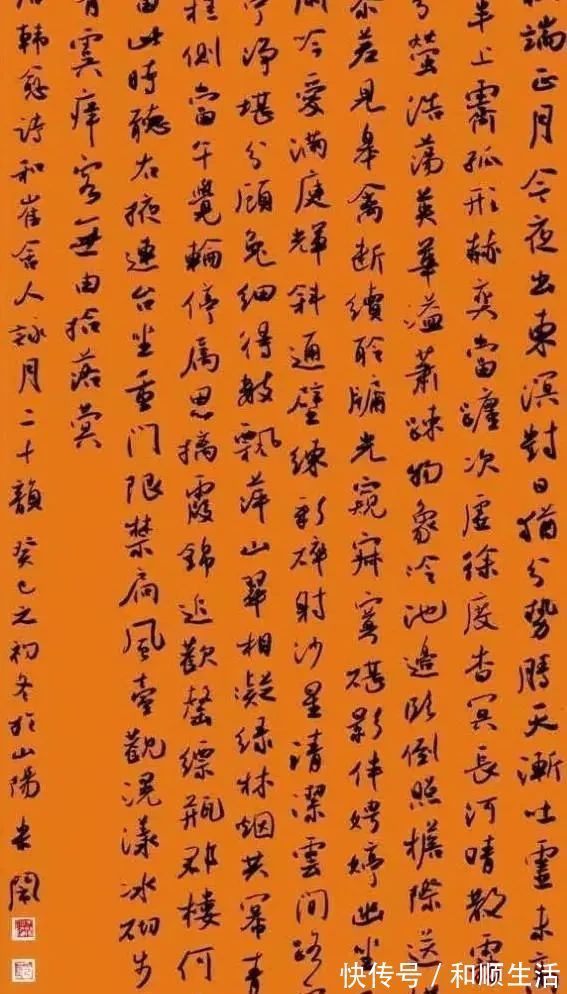 端正月今夜出東溟對日猶分勢騰天漸吐靈未高
半上霽孤形赫奕當躔次虛徐度杳冥長河晴散霧
分螢浩蕩英華溢蕭疎物象冷池邊臨倒照檐際送
差見皋禽斷續聆牖光窺寂寞碪影伴娉婷幽坐
閒吟愛滿庭輝斜通壁練彩碎射沙星清潔雲間路
亭淨堪分顧兔細得數飄萍山翠相凝綠林烟共冪青
桂側當午覺輪停属思摛霞錦追歡罄縹瓶郡樓何
笛此時聽右掖連台坐重门限禁扃風臺觀滉漾冰砌步
有虞庠客無由拾落蓂
韓愈詩和崔舍人詠月二十韻癸巳之初冬於山陽
快传号/和顺生活